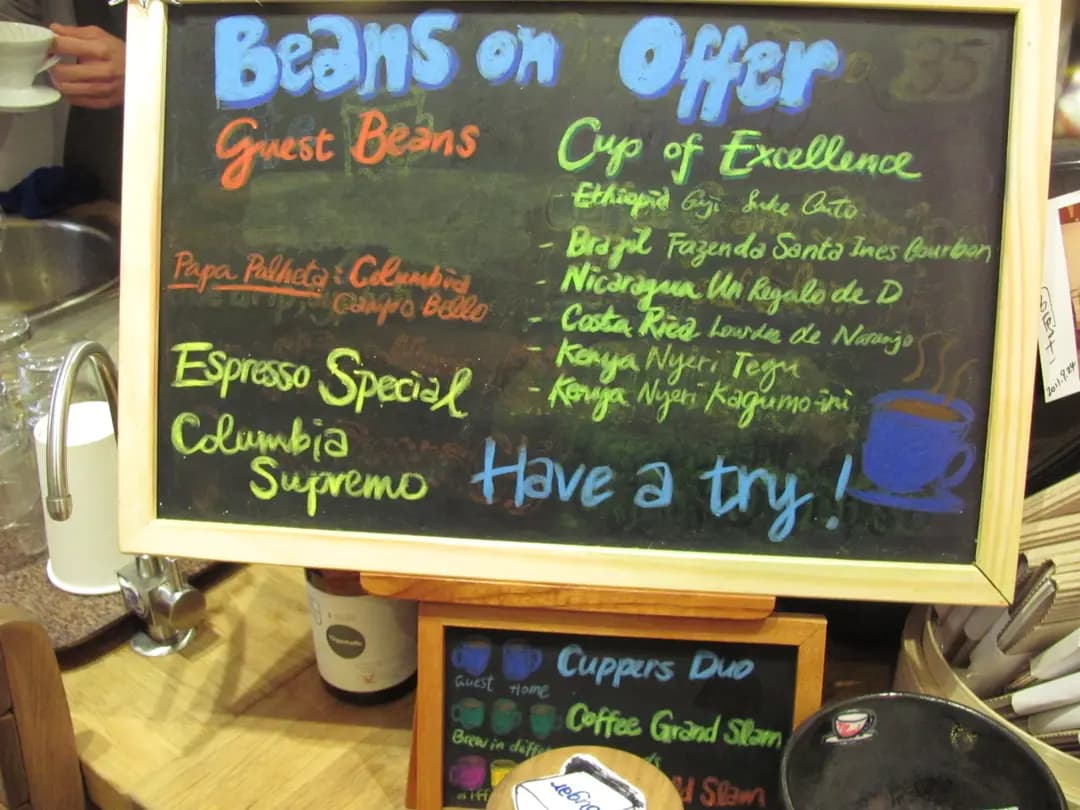 Beans on Offer
Guest Beans
Papa Palheta: Columbia
Campo Bello
Espresso Special
Columbia
Supremo
Cup of Excellence
- Ethiopia
- Brazil Fazenda Santa Ines Bourbon
- Nicaragua Un Regalo de D
- Costa Rica Lourdes de Naranjo
- Kenya Nyeri Tegu
- Kenya Nyeri Kagumo-ini
Have a try!
2011.9.24
Cuppers Duo
Guest Home
Coffee Grand Slam
Brew in
Slam
Sugar